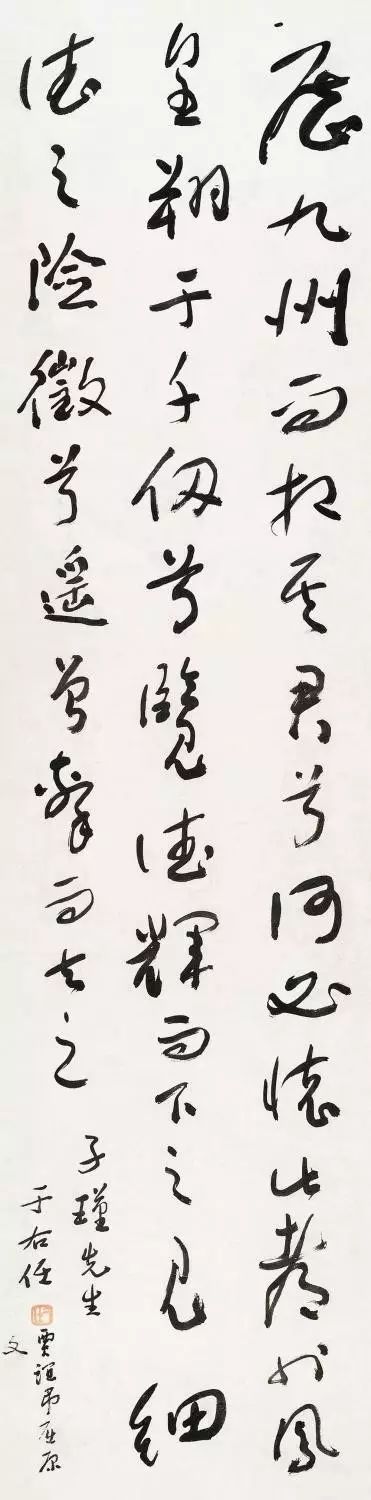 歷九州而相其君兮何必懷此都也鳳
皇翔于千仞兮覽德輝而下之見細
德之險徵兮遥曾擊而去之
子瑾先生
于右任
賈誼弔屈原
文